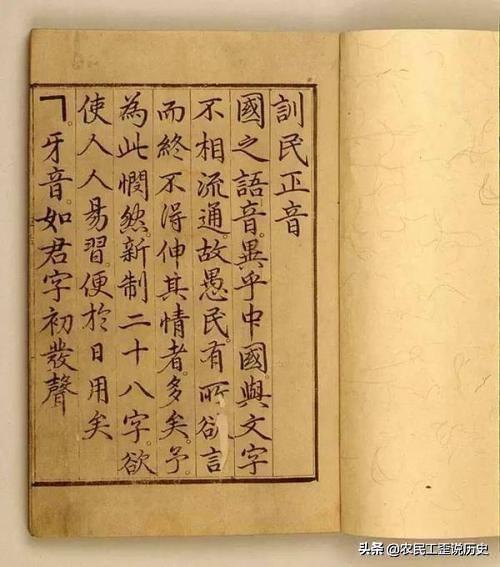 訓民正音
國之語音。異乎中國。與文字
不相流通。故愚民。有所欲言
而終不得伸其情者。多矣。予。
為此憫然。新制二十八字。欲
使人人易習。便於日用矣
ㄱ。牙音。如君字初發聲
头条 @农民工歪说历史